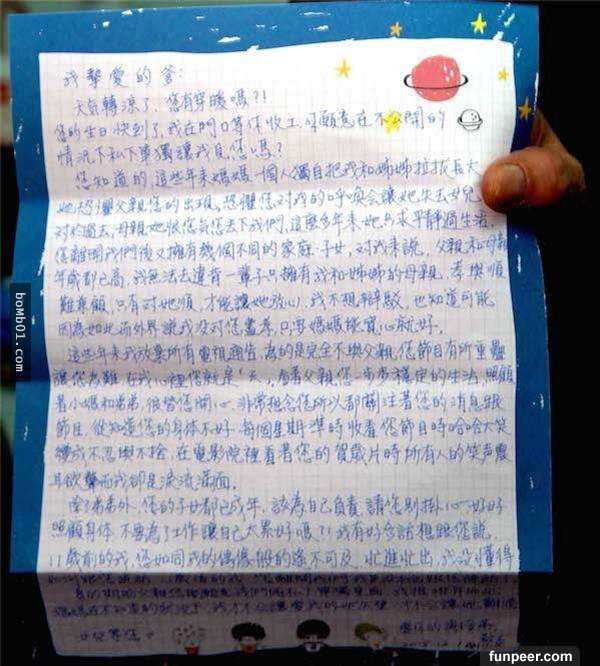 我摯愛的爸:
天氣轉涼了、您有穿暖嗎?!
您的生日快到了,我在門口等你收工,你願意在不公開的
情況下私下單獨讓我見您嗎?
您知道的,這些年來媽媽一個人獨自把我和姊姊拉拔長大
她恐懼父親您的出現,恐懼您對我的呼喚會讓她失去女兒
對於過去,母親她恨您氣您丟下我們,這麼多年來她只求平靜過生活,
您離開我們後又擁有幾個不同的家庭子女,對我來說,父親和母親
年歲都已高,我無法去違背一輩子只擁有我和姊姊的母親,孝與順
難兼顧,只有對她順,才能讓她放心,我不想辯駁,也知道可能
因為如此而外界說我沒對您盡孝,只要媽媽能寬心就好。
這些年來我放棄所有電視通告,為的是完全不與父親您節目有所重疊
讓您為難,在我心裡您就是「天」,看著父親您一步步穩定的生活,照顧
著小媽和弟弟,很替您開心,非常想念您所以都關注著您的消息跟
節目,從知道您的身體不好,每個星期準時收看您節目時哈哈大笑
變成不忍與不捨,在電影院裡看著您的賀歲片時所有人的笑聲震
耳欲聾而我卻是淚流滿面。
除了弟弟外,您的子女都已成年,該為自己負責,請您別掛心,好好
照顧身體,不要為了工作讓自己太累好嗎?!我有好多話想跟您說,
11歲前的我,您如同我的偶像般的遙不可及,忙進忙出,我沒懂得
女兒等您。
boMb01.com
funpeer.com